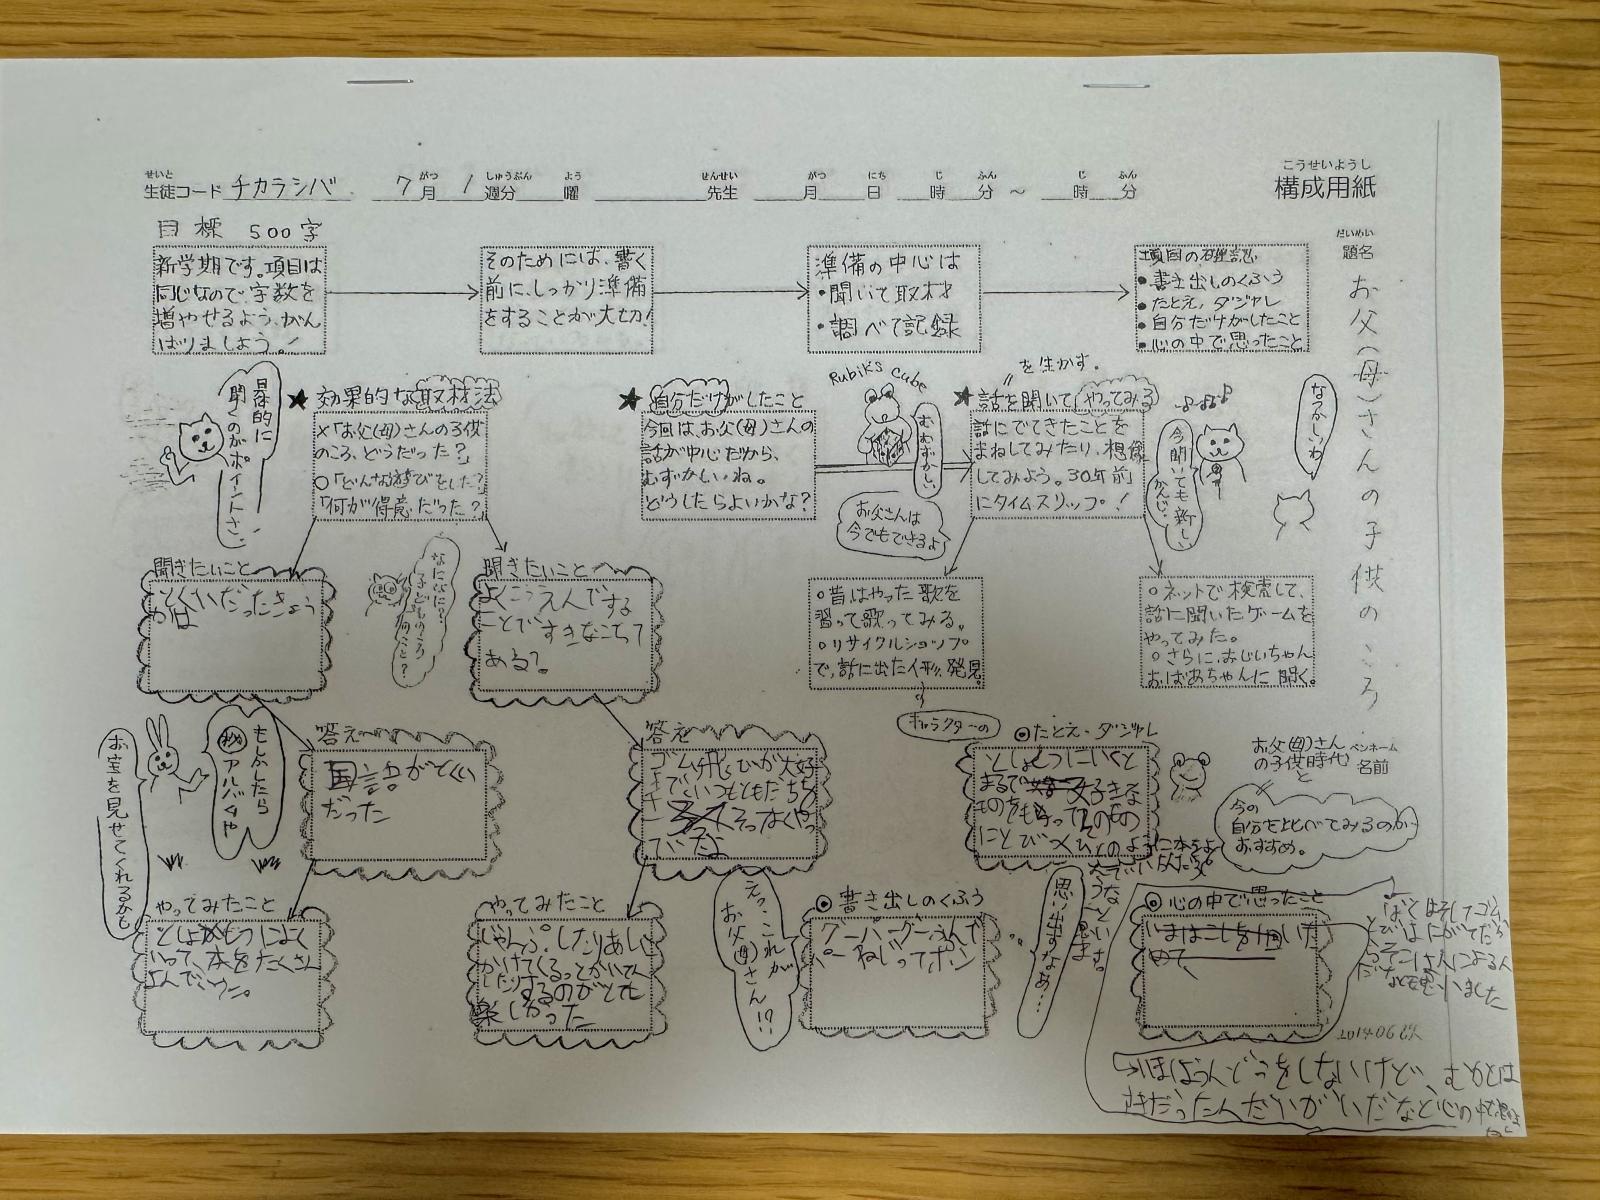 せいと がつ しゅうぶん よう せんせい がつ にち じ ふん じ ふん
生徒コード チカラシバ 7月 1週分 曜 先生 月 日 時 分 ～ 時 分
こうせいようし
構成用紙
だいめい
題名
お父(母)さんの子供のころ
目標 500字
新学期です。項目は
同じなので、字数を
増やせるよう、がん
ばりましょう。!
そのためには、書く
前に、しっかり準備
をすることが大切!
準備の中心は
・聞いて取材
・調べて記録
項目の確認
・書き出しのくふう
・たとえ、ダジャレ
・自分だけがしたこと
・心の中で思ったこと
具体的に
聞くのがポ
イントさ。
★効果的な取材法
×「お父(母)さんの子供
のころ、どうだった?」
○「どんな遊びをした?」
「何が得意だった?」
★自分だけがしたこと
今回は、お父(母)さんの
話が中心だから、
むずかしいね。
どうしたらよいかな?
Rubik's Cube
むむずかしい
お父さんは
今でもできるよ
★話を聞いてやってみる
を生かす。
話にでてきたことを
まねしてみたり、想像
してみよう。30年前
にタイムスリップ!
今聞いても新しい
かんじ。
なつかしいわ
聞きたいこと
とくいだったきょう
かは
なになに?
子どものころ
何こと?
聞きたいこと
よくこうえんでする
ことですきなこちて
ある?
○昔はやった歌を
習って歌ってみる。
○リサイクルショップ
で、話に出た 発見。
キャラクターの
○ネットで検索して、
話に聞いたゲームを
やってみた。
○さらに、おじいちゃん
おばあちゃんに聞く。
もしかしたら
㊙アルバムや
お宝を見せてくれるかも
答え
国語がとくい
だった
答え
ゴム飛びが大好
きでいつもともだちを
さそってなくやっ
でいたよ
◎たとえ・ダジャレ
としょしつにいくと
まるで 好きな
ものをもらってそのもの
にとび のように本をよ
お父(母)さん
の子供時代
と
今の
自分を比べてみるのが
おすすめ。
ペンネーム
名前
やってみたこと
としょしつによく
いって、本をたくさん
よんでいた。
やってみたこと
じゃんぷしたりあしに
かけてくるっとかいてん
したりするのがとても
楽しかった
えっ…これが
お父(母)さん!?
◎書き出しのくふう
グーパーグーふんで
パー ねじってポン
思い出すなあ…
うなといいます。
◎心の中で思ったこと
ぼくはそしてゴム
とびはにがてだか
らそこは人によるん
だなと思いました
いまはうんどうをしないけど、むかしは
すきだったんだいがいだなと心の中で思いまし